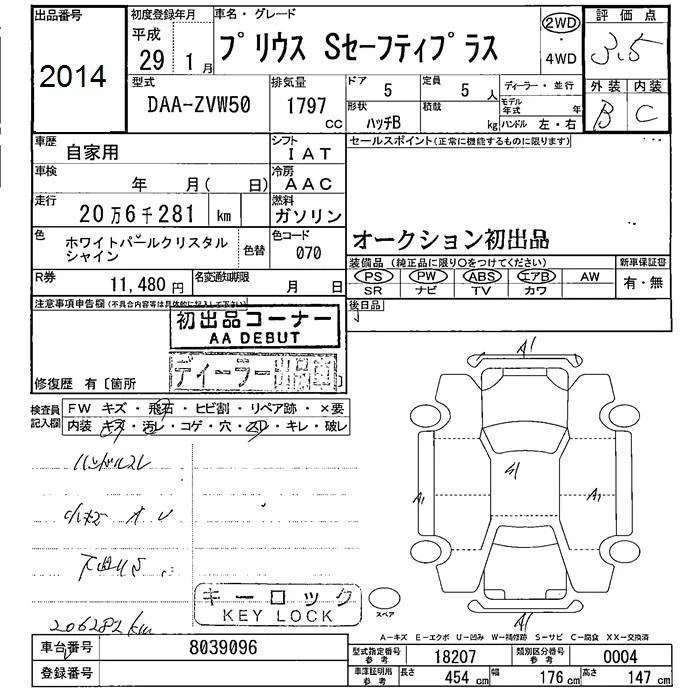 出品番号 初度登録年月 車名・グレード 評価点
平成 29年 1月 プリウス Sセーフティプラス 2WD ・ 4WD 3.5
2014
型式 排気量 ドア 定員 ディーラー・並行 外装 内装
DAA-ZVW50 1797 CC 5 5人 モデル年式 年 B C
形状 ハッチB 積載 kg ハンドル 左・右
車歴 自家用 シフト IAT セールスポイント(正常に機能するものに限ります)
車検 年 月( 日) 冷房 AAC
走行 20万6千281 km 燃料 ガソリン
色 ホワイトパールクリスタルシャイン 色替 色コード 070 オークション初出品
装備品(純正品に限り○をつけてください) 新車保証書
PS PW ABS エアB AW 有・無
SR ナビ TV カワ
R券 11,480円 名変通知期限 月 日
後日品
注意事項申告欄(不具合内容等は具体的に記入して下さい)
初出品コーナー
AA DEBUT
ディーラー出品車
修復歴 有〔箇所
検査員記入欄 FW キズ・飛石・ヒビ割・リペア跡・×要
内装 キズ・汚レ・コゲ・穴・スレ・キレ・破レ
ハンドルスレ
206282km
キーロック
KEY LOCK
A1
A1
A1
A1
A1
スペア
A-キズ E-エクボ U-凹み W-補修跡 S-サビ C-腐食 XX-交換済
車台番号 8039096 型式指定番号参考 18207 類別区分番号参考 0004
登録番号 車庫証明用参考 長さ 454 cm 幅 176 cm 高さ 147 cm